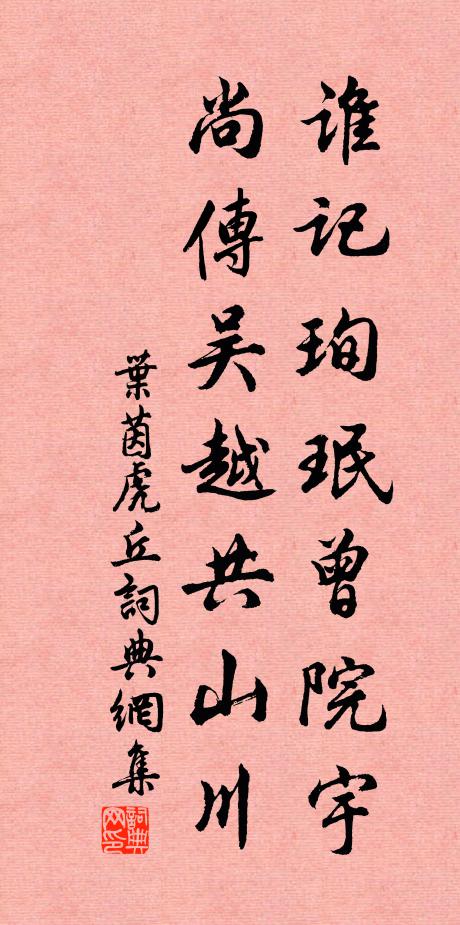 誰記珣珉曾院宇
尚傳吴越共山川
葉茵虎丘詞典網集
詞典网印